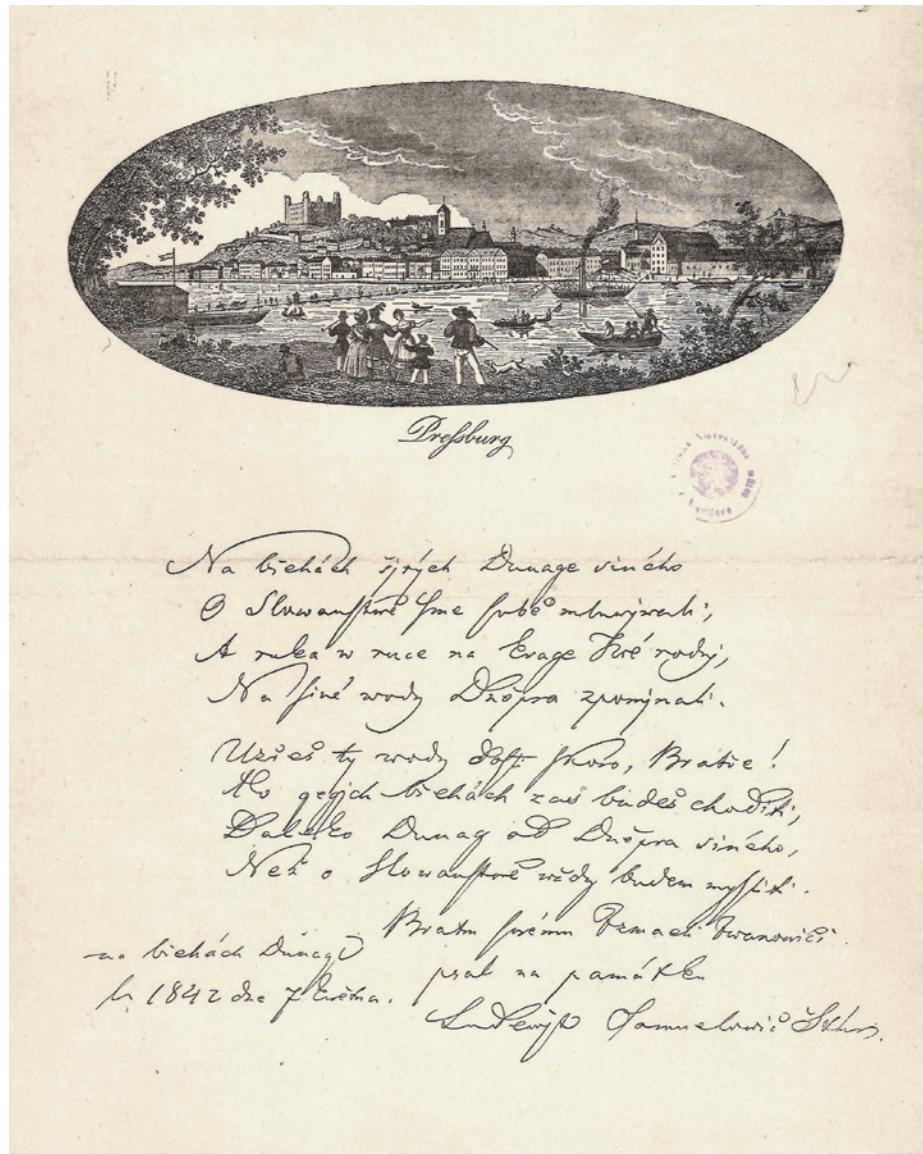 Pressburg
Na břehách šjrých Dunage siného
O Slowanstwě sme sobě mluwjwali,
A ruka w ruce na kraje swé rodný,
Na siné wody Dněpra zpomjnali.
Uzřeš ty wody dosti skoro, Bratře!
Po gegich břehách zas budeš choditi,
Daleko Dunag od Dněpra siného,
Než o Slowanstwě wždy budem mysliti.
Bratru swému Izmaeli Iwanowiči
na břehách Dunage
psal na památku
l. 1842 dne 7 Května.
Ludewjt Samuelowič Štúr.